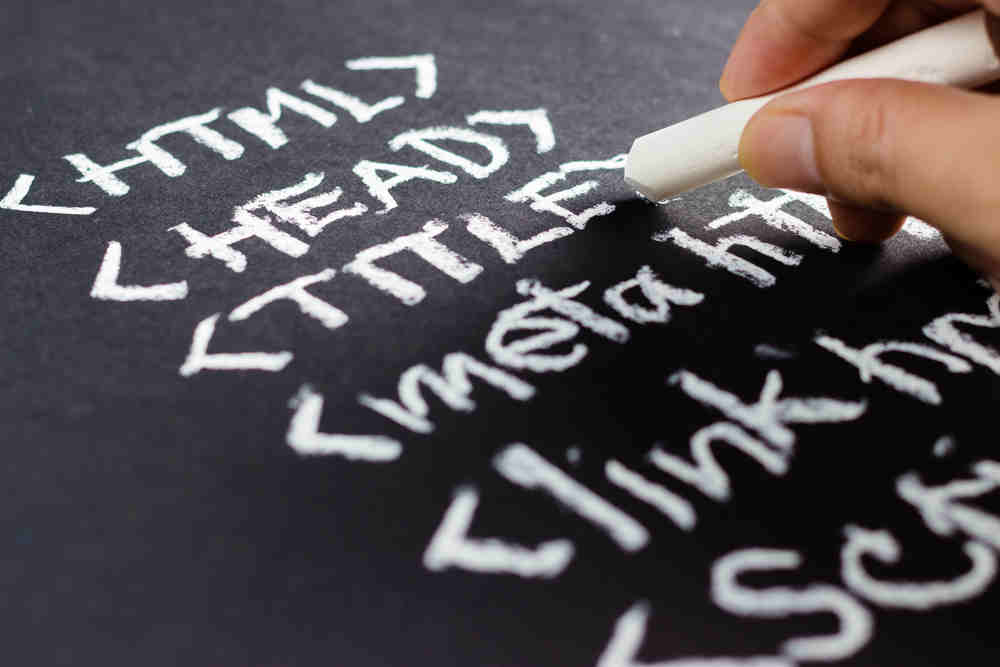 <HTML>
<HEAD>
<TITLE
<meta ht
<link h
<sc